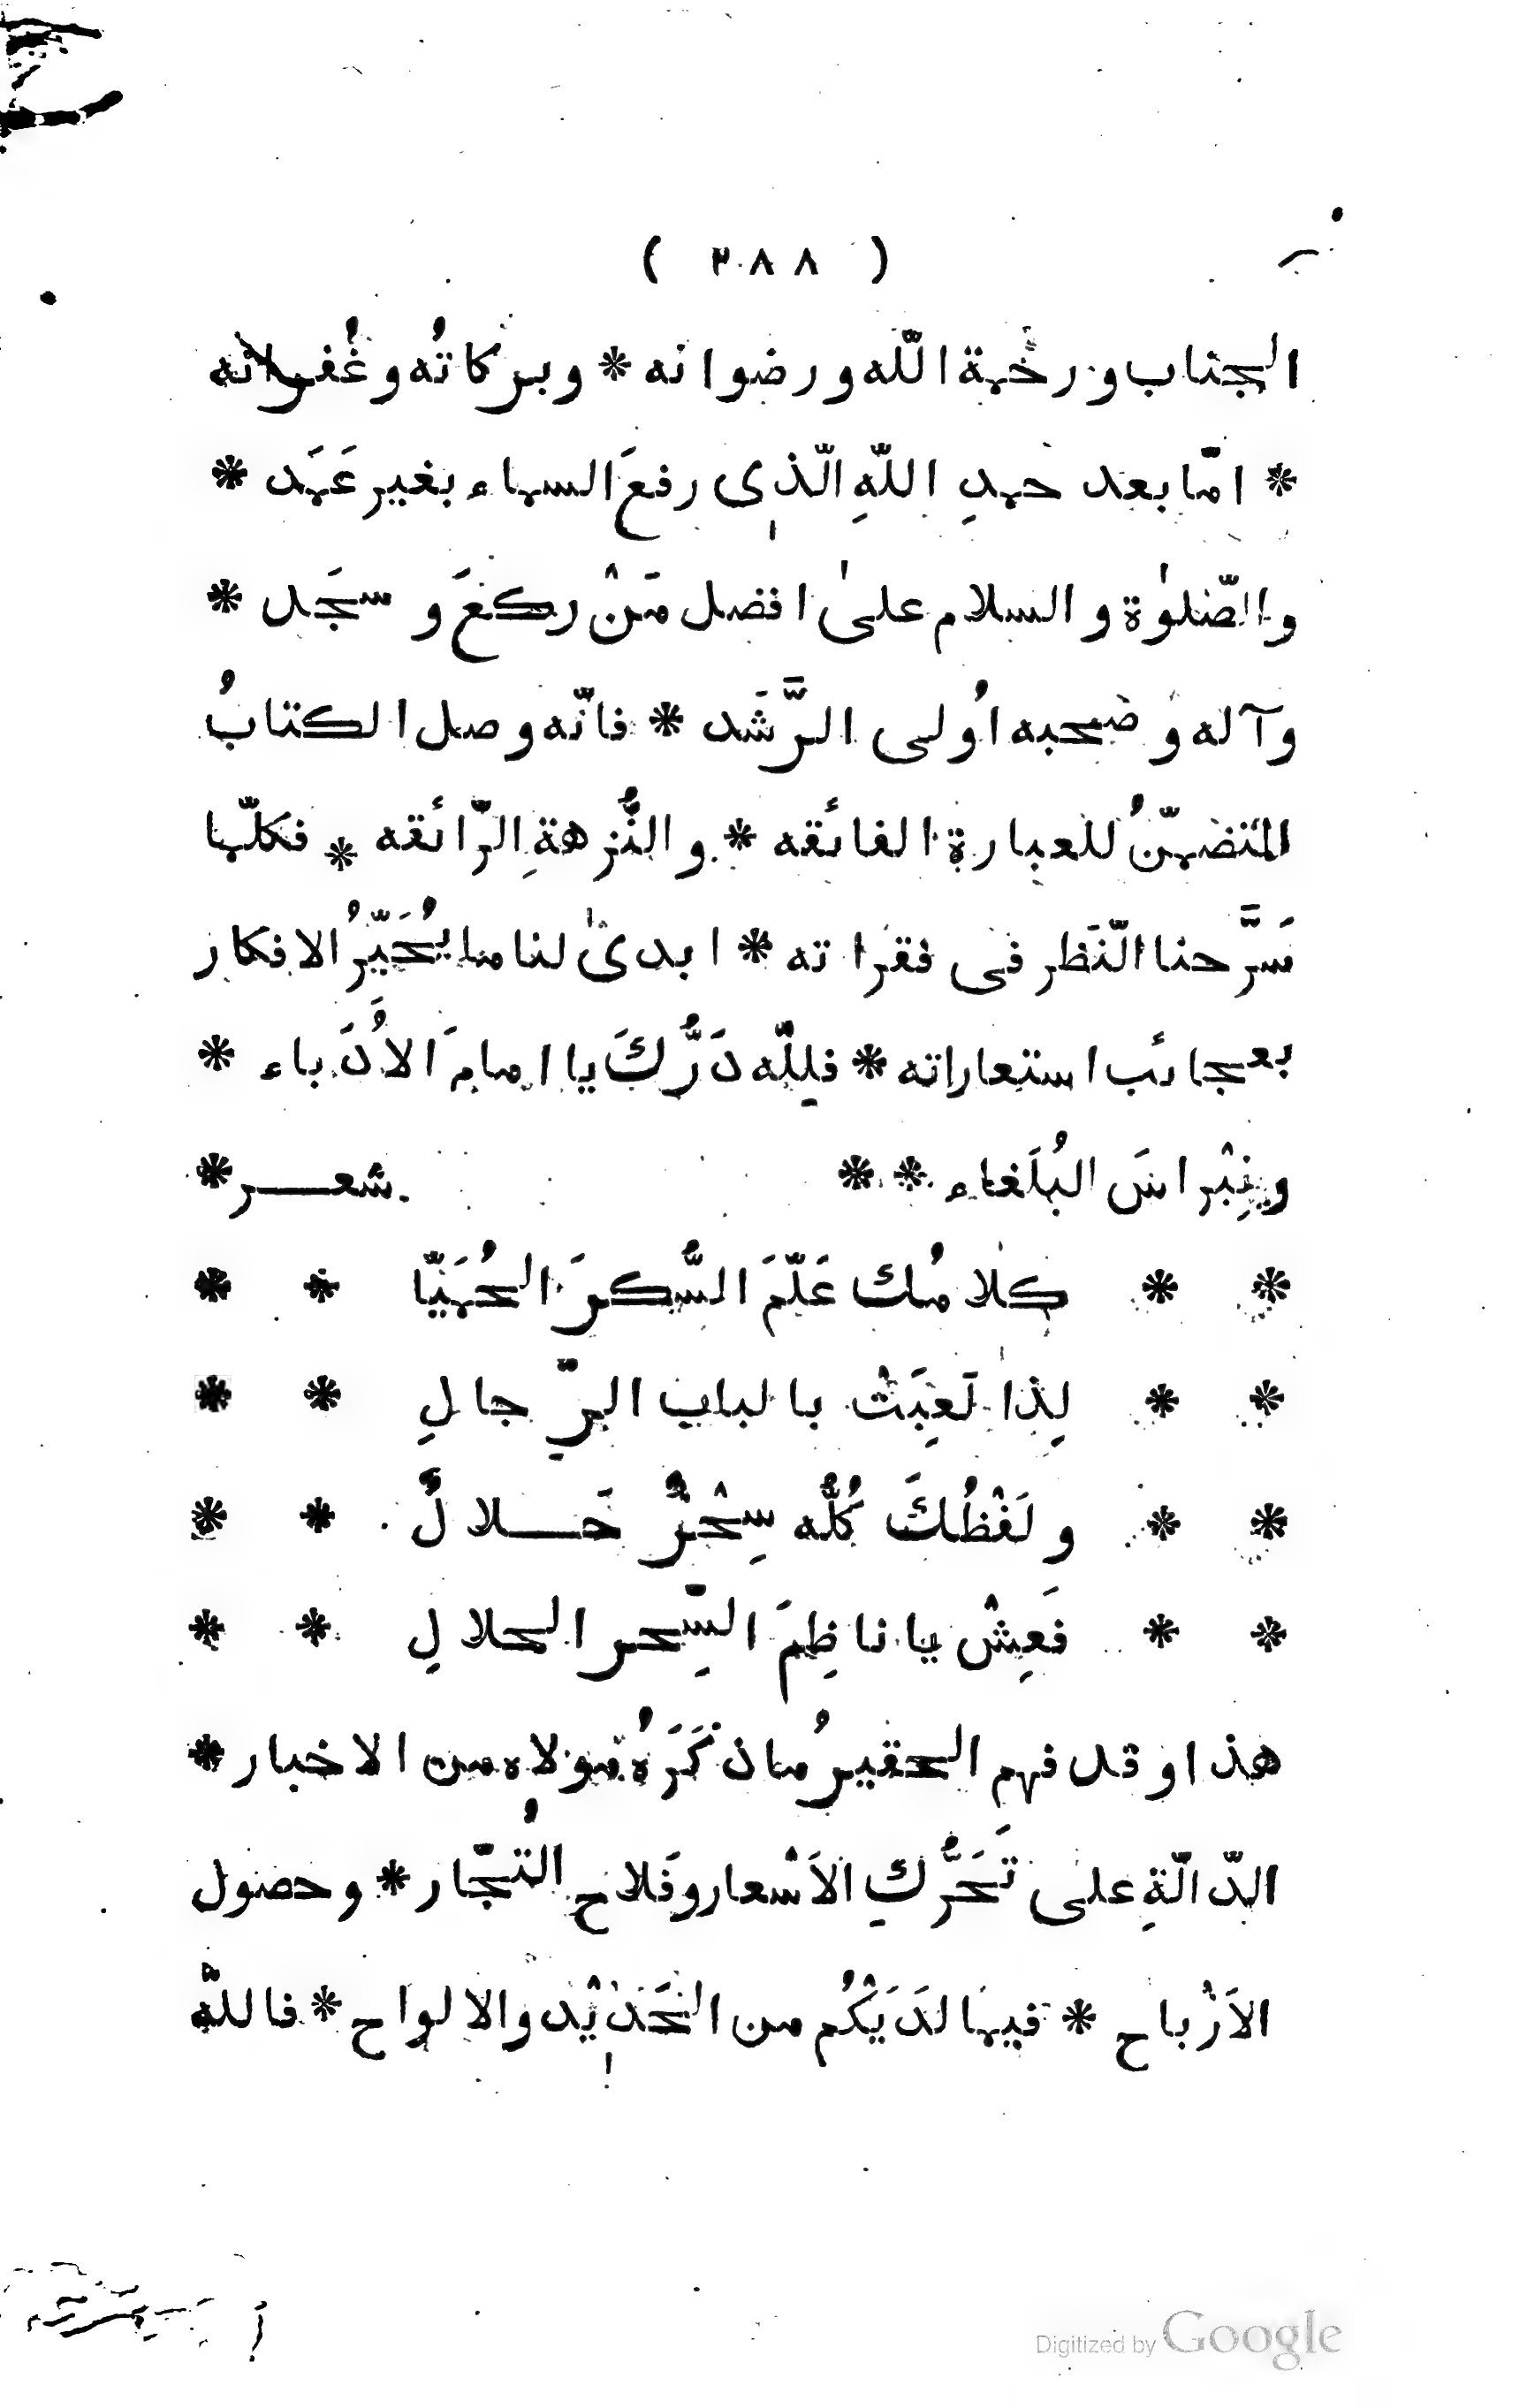 ( ٣٨٨ )
الجناب ورحمة اللّه ورضوانه * وبركاتُه وغُفرانُه
* امّا بعد حمدِ اللّهِ الّذى رفعَ السماء بغير عَمَد *
والصّلوٰة والسلام علىٰ افضل مَنْ ركعَ وسجَد *
وآله وصحبه اُولى الرَّشَد * فانّه وصل الكتابُ
المتضمّنُ للعبارة الفائقه * والنُّزهةِ الرّائقه * فكلّما
سَرَّحنا النَّظر فى فقراته * ابدىٰ لنا ما يُحَيّرُ الافكار
بعجائب استعاراته * فللّه دَرُّكَ يا امامَ الاُدَباء *
ونِبْراسَ البُلَغاء * * شعر *
* * كلامُك عَلّمَ السُّكرَ الحُمَيّا * *
* * لِذا لَعِبَتْ بالباب الرّجالِ * *
* * ولَفْظُكَ كُلُّه سِحْرٌ حَلالٌ * *
* * فَعِشْ يا ناظِمَ السِّحر الحلالِ * *
هذا وقد فهم الحقيرُ ما ذَكَرَهُ مولاه من الاخبار *
الدّالّةِ على تَحَرُّكِ الاَسْعار وفَلاح التُجّار * وحصول
الاَرْباح * فيما لدَيْكُم من الحَديْد والالواح * فاللّه
Digitized by Google